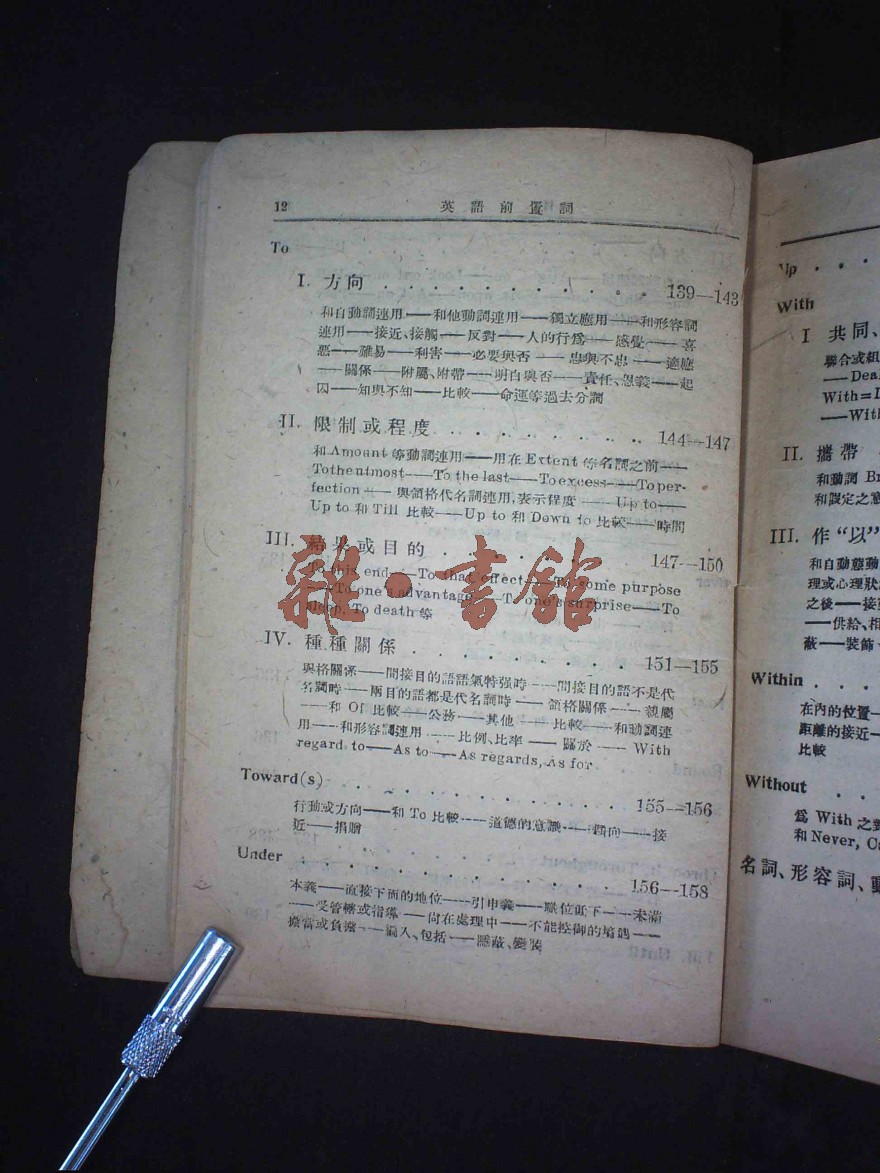 12 英語前置詞
To
I. 方向 . . . . . . . . . . . . 139—143
和自動詞連用——和他動詞連用——獨立應用——和形容詞
連用——接近、接觸——反對——人的行爲——感覺——喜
惡——難易——利害——必要與否——忠與不忠——適應
——關係——附屬、附帶——明白與否——責任、恩義——起
因——知與不知——比較——命運等過去分詞
II. 限制或程度 . . . . . . . . . 144—147
和 Amount 等動詞連用——用在 Extent 等名詞之前——
To the utmost——To the last——To excess——To per-
fection——與領格代名詞連用,表示程度——Up to——
Up to 和 Till 比較——Up to 和 Down to 比較——時間
III. 結果或目的 . . . . . . . . 147—150
To this end——To that effect——To some purpose
——To one's advantage——To one's surprise——To
sleep, To death 等
雜·書館
IV. 種種關係 . . . . . . . . . 151—155
與格關係——間接目的語語氣特强時——間接目的語不是代
名詞時——兩目的語都是代名詞時——領格關係——親屬
——和 Of 比較——公務——其他——比較——和動詞連
用——和形容詞連用——比例、比率——關於——With
regard to——As to——As regards, As for
Toward(s) . . . . . . . . . . . . 155—156
行動或方向——和 To 比較——道德的意識——趨向——接
近——捐贈
Under . . . . . . . . . . . . . 156—158
本義——直接下面的地位——引申義——職位低下——未滿
——受管轄或指導——尚在處理中——不能控御的境遇——
擔當或負擔——編入、包括——隱蔽、變裝
Up . . .
With
I 共同、
聯合或組
——Dea
With=I
——With
II. 攜帶
和動詞 Br
和假定之意
III. 作“以”
和自動態動
理或心理狀
之後——接
——供給、相
蔽——裝飾
Within . . .
在內的位置—
距離的接近—
比較
Without
爲 With 之對
和 Never, Ca
名詞、形容詞、動